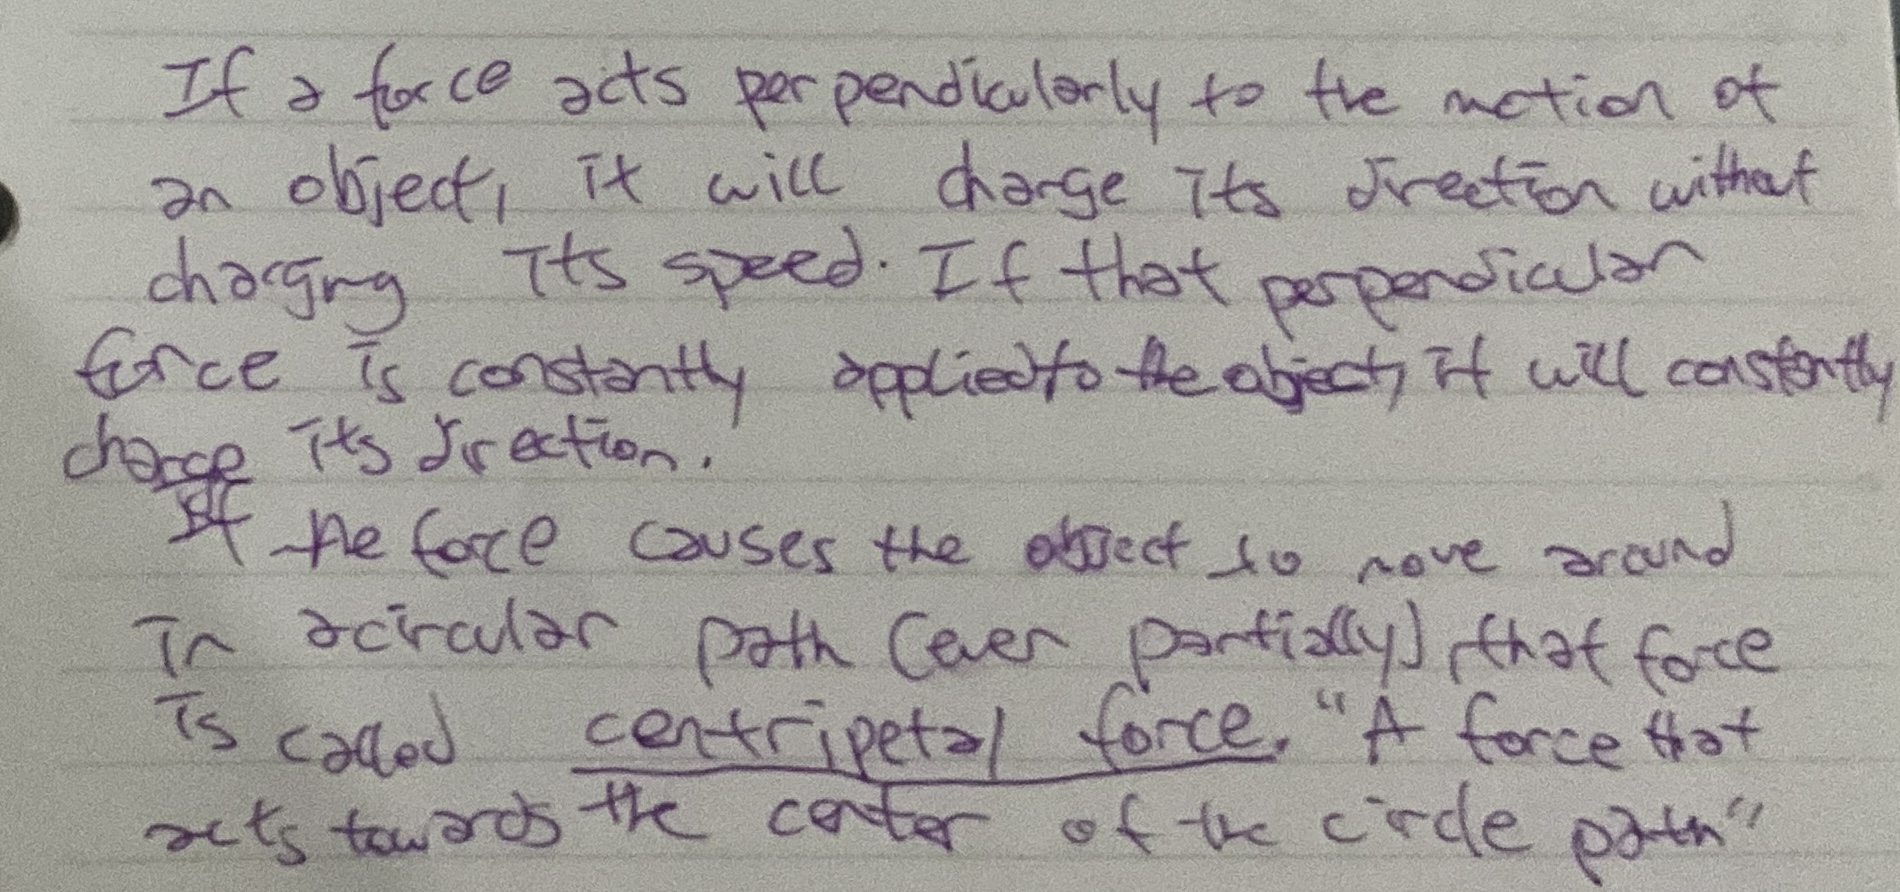 If a force acts perpendicularly to the motion of
an object, it will change its direction without
changing its speed. If that perpendicular
force is constantly applied to the object, it will constantly
change its direction.
If the force causes the object to move around
in a circular path (even partially), that force
is called centripetal force. "A force that
acts towards the center of the circle path"